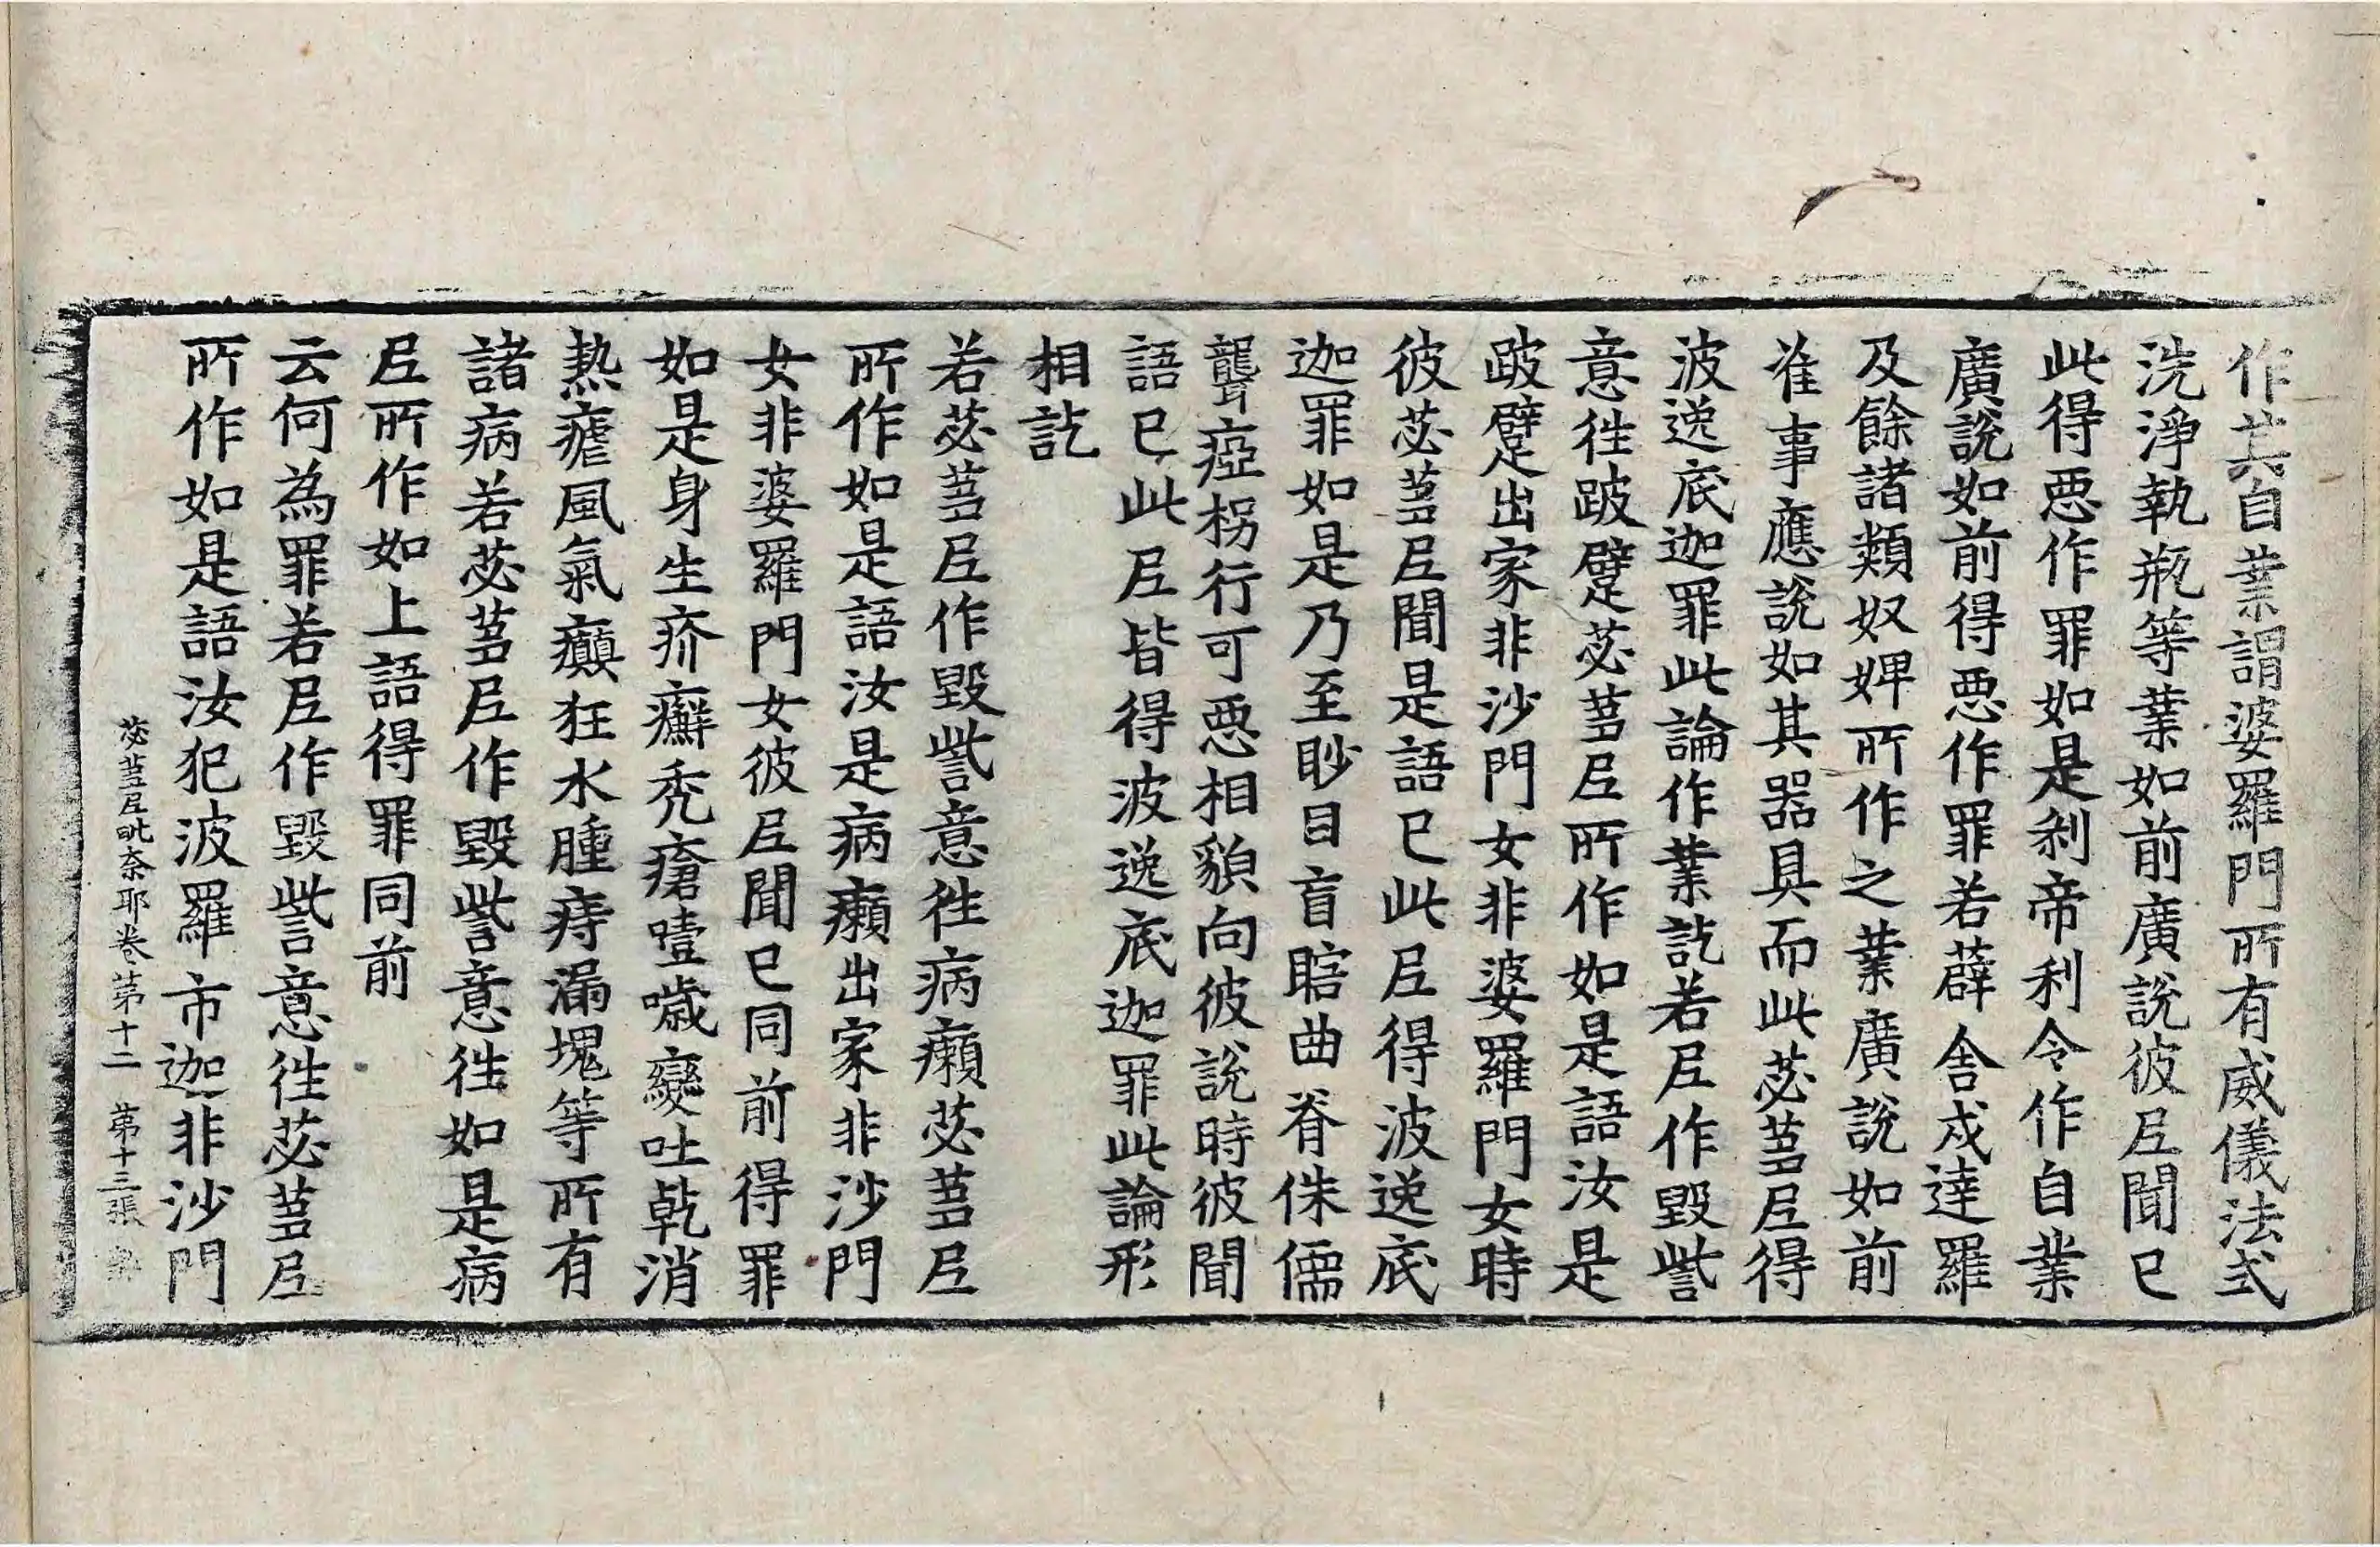 作其自業謂婆羅門所有威儀法式
洗淨執瓶等業如前廣說彼尼聞已
此得惡作罪如是刹帝利令作自業
廣說如前得惡作罪若薜舍戍達羅
及餘諸類奴婢所作之業廣說如前
准事應說如其器具而此苾芻尼得
波逸底迦罪此論作業訖若尼作毀訾
意往跛躄苾芻尼所作如是語汝是
跛躄出家非沙門女非婆羅門女時
彼苾芻尼聞是語已此尼得波逸底
迦罪如是乃至眇目盲瞎曲脊侏儒
聾瘂柺行可惡相貌向彼說時彼聞
語已此尼皆得波逸底迦罪此論形
相訖
若苾芻尼作毀訾意往病癩苾芻尼
所作如是語汝是病癩出家非沙門
女非婆羅門女彼尼聞已同前得罪
如是身生疥癬禿瘡噎噦變吐乾消
熱瘧風氣癲狂水腫痔漏塊等所有
諸病若苾芻尼作毀訾意往如是病
尼所作如上語得罪同前
云何為罪若尼作毀訾意往苾芻尼
所作如是語汝犯波羅市迦非沙門
苾芻尼毗奈耶卷第十二 第十三張